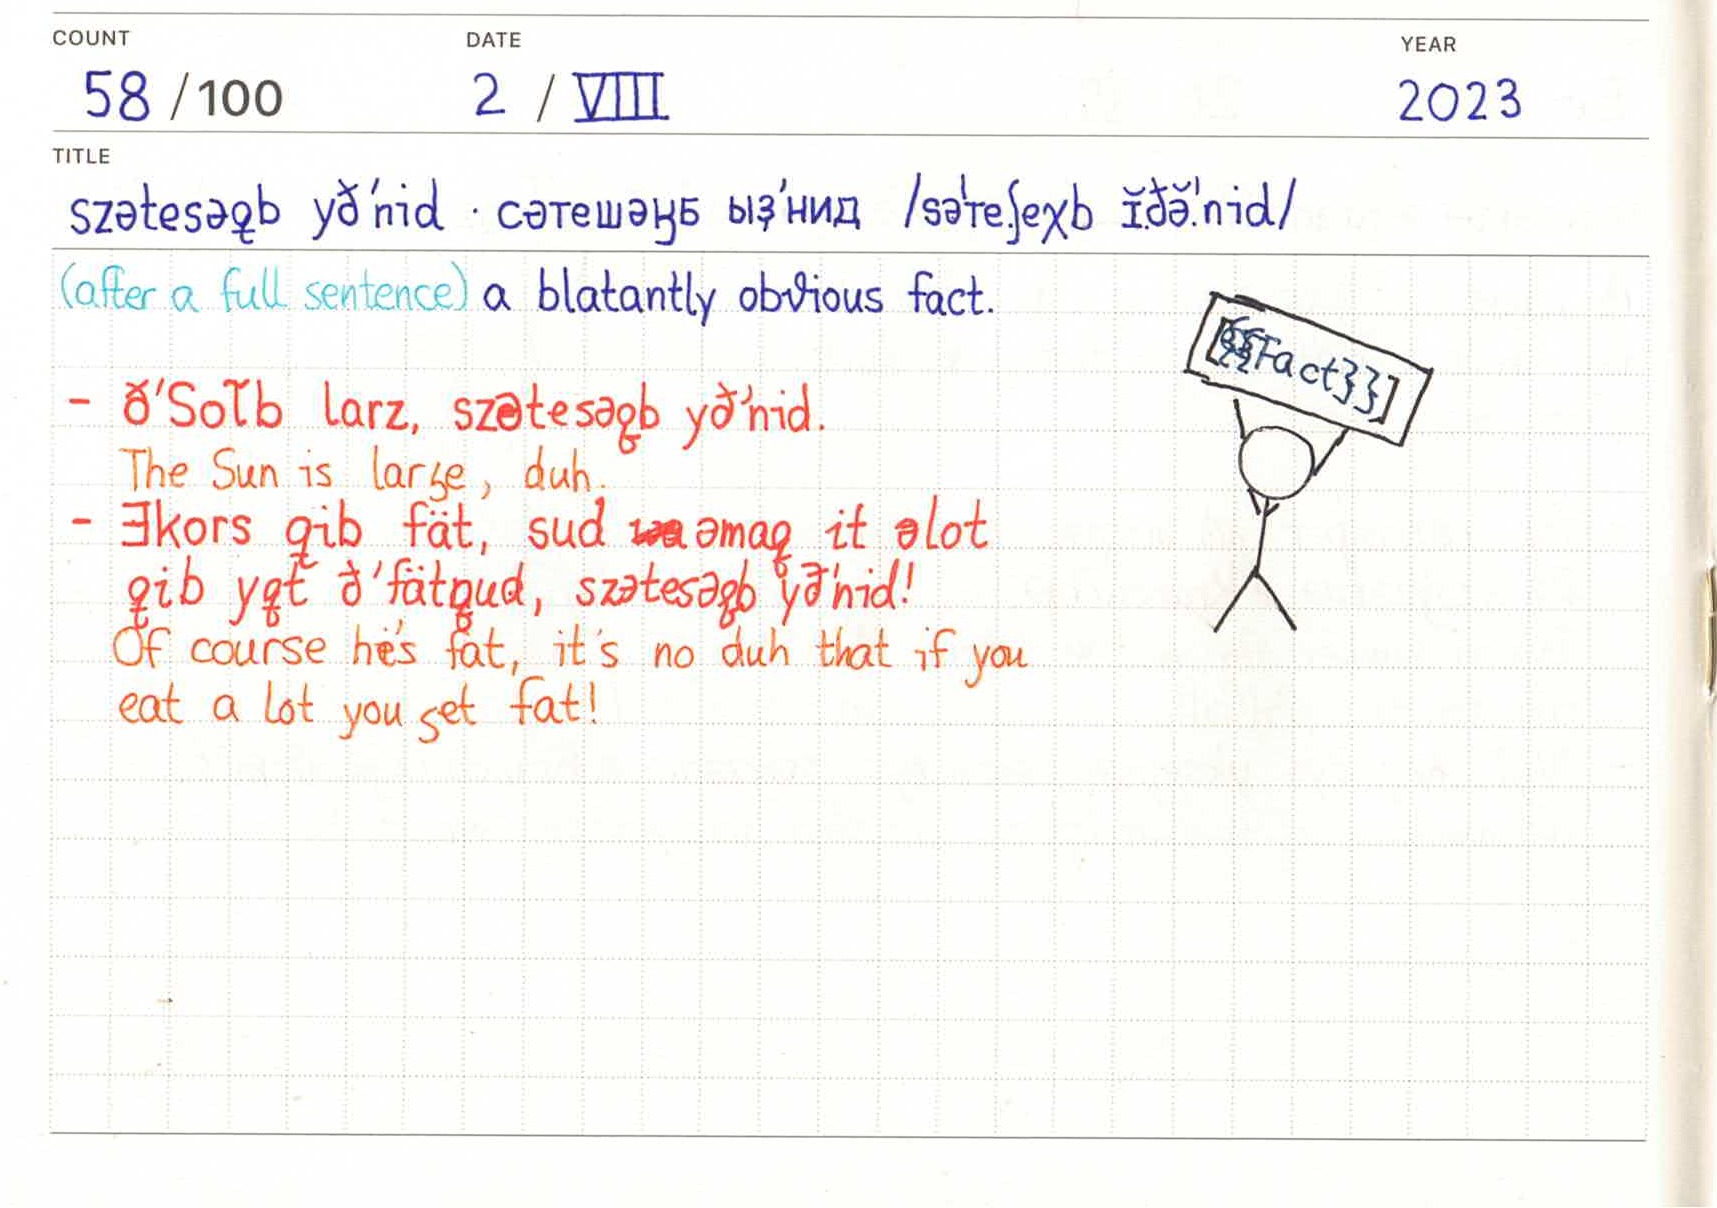 COUNT DATE YEAR
58 /100 2 / VIII 2023
TITLE
szətesəq̱b yð'nid · сәтешәӄб ыҙ'нид /sə'te.ʃeχb ɪ̆.ðə̆.'nid/
(after a full sentence) a blatantly obvious fact.
[{{Fact}}]
- ð'Sol̃b larz, szətesəq̱b yð'nid.
The Sun is large, duh.
- Ǝkors qib fät, sud əmaq it əlot
qib yqt ð'fätqud, szətesəq̱b yð'nid!
Of course he's fat, it's no duh that if you
eat a lot you get fat!